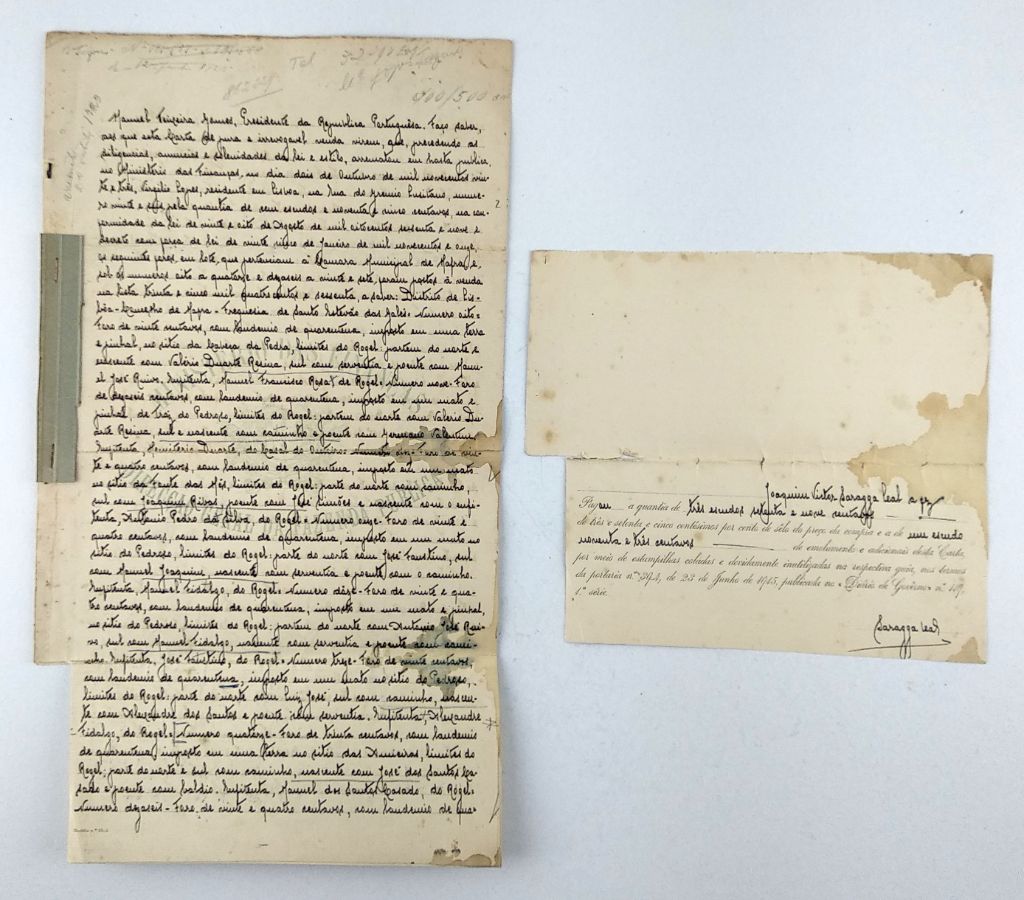 Tel
500/500
Manuel Teixeira Gomes, Presidente da Republica Portuguêsa. Faço saber,
aos que esta Carta de pura e irrevogavel venda virem, que, precedendo as
diligencias, anuncios e solenidades da lei e estilo, arrematou em hasta publica,
no Ministério das Finanças, no dia dois de Outubro de mil novecentos vin-
te e três, Virgilio Lopes, residente em Lisboa, na Rua do Gremio Lusitano, nume-
ro vinte e seis pela quantia de cem escudos e noventa e cinco centavos, na con-
formidade da lei de vinte e oito de Agosto de mil oitocentos sessenta e nove e
decreto com força de lei de vinte cinco de Janeiro de mil novecentos e onze,
os seguintes foros, em lote, que pertenciam á Camara Municipal de Mafra e,
sob os numeros oito a quatorze e dezaseis a vinte e sete, foram postos á venda
na lista trinta e cinco mil quatrocentos e sessenta, a saber: Distrito de Lis-
bôa - Concelho de Mafra - Freguesia de Santo Estevão das Galés - Numero oito -
Foro de vinte centavos, com laudemio de quarentena, imposto em uma terra
e pinhal, no sitio da Cabeça da Pedra, limites do Rogel: partem do norte e
nascente com Valério Duarte Resina, sul com serventia e poente com Manu-
el José Ruivo. Enfiteuta, Manuel Francisco Rosa, de Rogel - Numero nove - Foro
de dezaseis centavos, com laudemio de quarentena, imposto em um mato e
pinhal, de traz do Pedroso, limites do Rogel: partem do norte com Valerio Du-
arte Resina, sul e nascente com caminho e poente com Germano Valentim.
Enfiteuta, Monitério Duarte, do Casal do Outeiro - Numero dez - Foro de vin-
te e quatro centavos, com laudemio de quarentena, imposto em um mato
no sitio da Fonte das Mós, limites do Rogel: parte do norte com caminho,
sul com Joaquim Ribas, poente com José Simões e nascente com o enfi-
teuta, Antonio Pedro da Silva, do Rogel - Numero onze - Foro de vinte e
quatro centavos, com laudemio de quarentena, imposto em um mato no
sitio de Pedroso, limites do Rogel: parte do norte com José Faustino, sul
com Manuel Joaquim, nascente com serventia e poente com o caminho.
Enfiteuta, Manuel Fidalgo, do Rogel - Numero dôze - Foro de vinte e qua-
tro centavos, com laudemio de quarentena, imposto em um mato e pinhal,
no sitio do Pedroso, limites do Rogel: partem do norte com Antonio José Rui-
vo, sul com Manuel Fidalgo, nascente com serventia e poente com cami-
nho. Enfiteuta, José Faustino, do Rogel - Numero treze - Foro de vinte centavos,
com laudemio de quarentena, imposto em um mato no sitio do Pedroso,
limites do Rogel: parte do norte com Luiz José, sul com caminho, nascen-
te com Alexandre dos Santos e poente com serventia. Enfiteuta, Alexandre
Fidalgo, do Rogel - Numero quatorze - Foro de trinta centavos, com laudemio
de quarentena, imposto em uma terra no sitio das Ameixas, limites do
Rogel: parte do norte e sul com caminho, nascente com José dos Santos Ca-
sado e poente com baldio. Enfiteuta, Manuel dos Santos Casado, do Rogel -
Numero dezaseis - Foro de vinte e quatro centavos, com laudemio de qua-
Joaquim Victor Saragga Leal
Pagou a quantia de três escudos setenta e nove centavos
de três e setenta e cinco centésimos por cento de sêlo do preço da compra e a de um escudo
noventa e três centavos de emolumento e adicionais desta Carta,
por meio de estampilhas coladas e devidamente inutilizadas na respectiva guia, nos termos
da portaria n.º 394, de 23 de Junho de 1915, publicada no «Diário do Govêrno» n.º 119,
1.ª série.
Saragga Leal